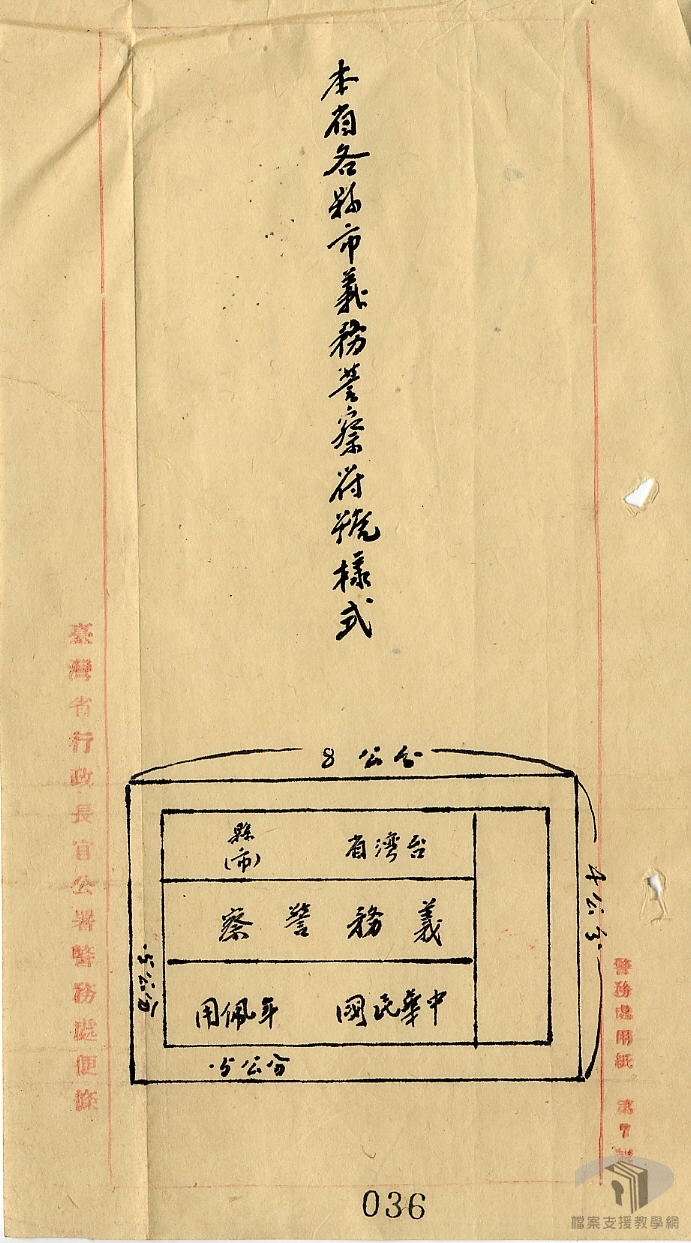 警務處用紙 第7號
本省各縣市義務警察符號樣式
8公分
4公分
台灣省 縣(市)
義務警察
中華民國 年佩用
.5公分
.5公分
臺灣省行政長官公署警務處便條
036
檔案支援教學網